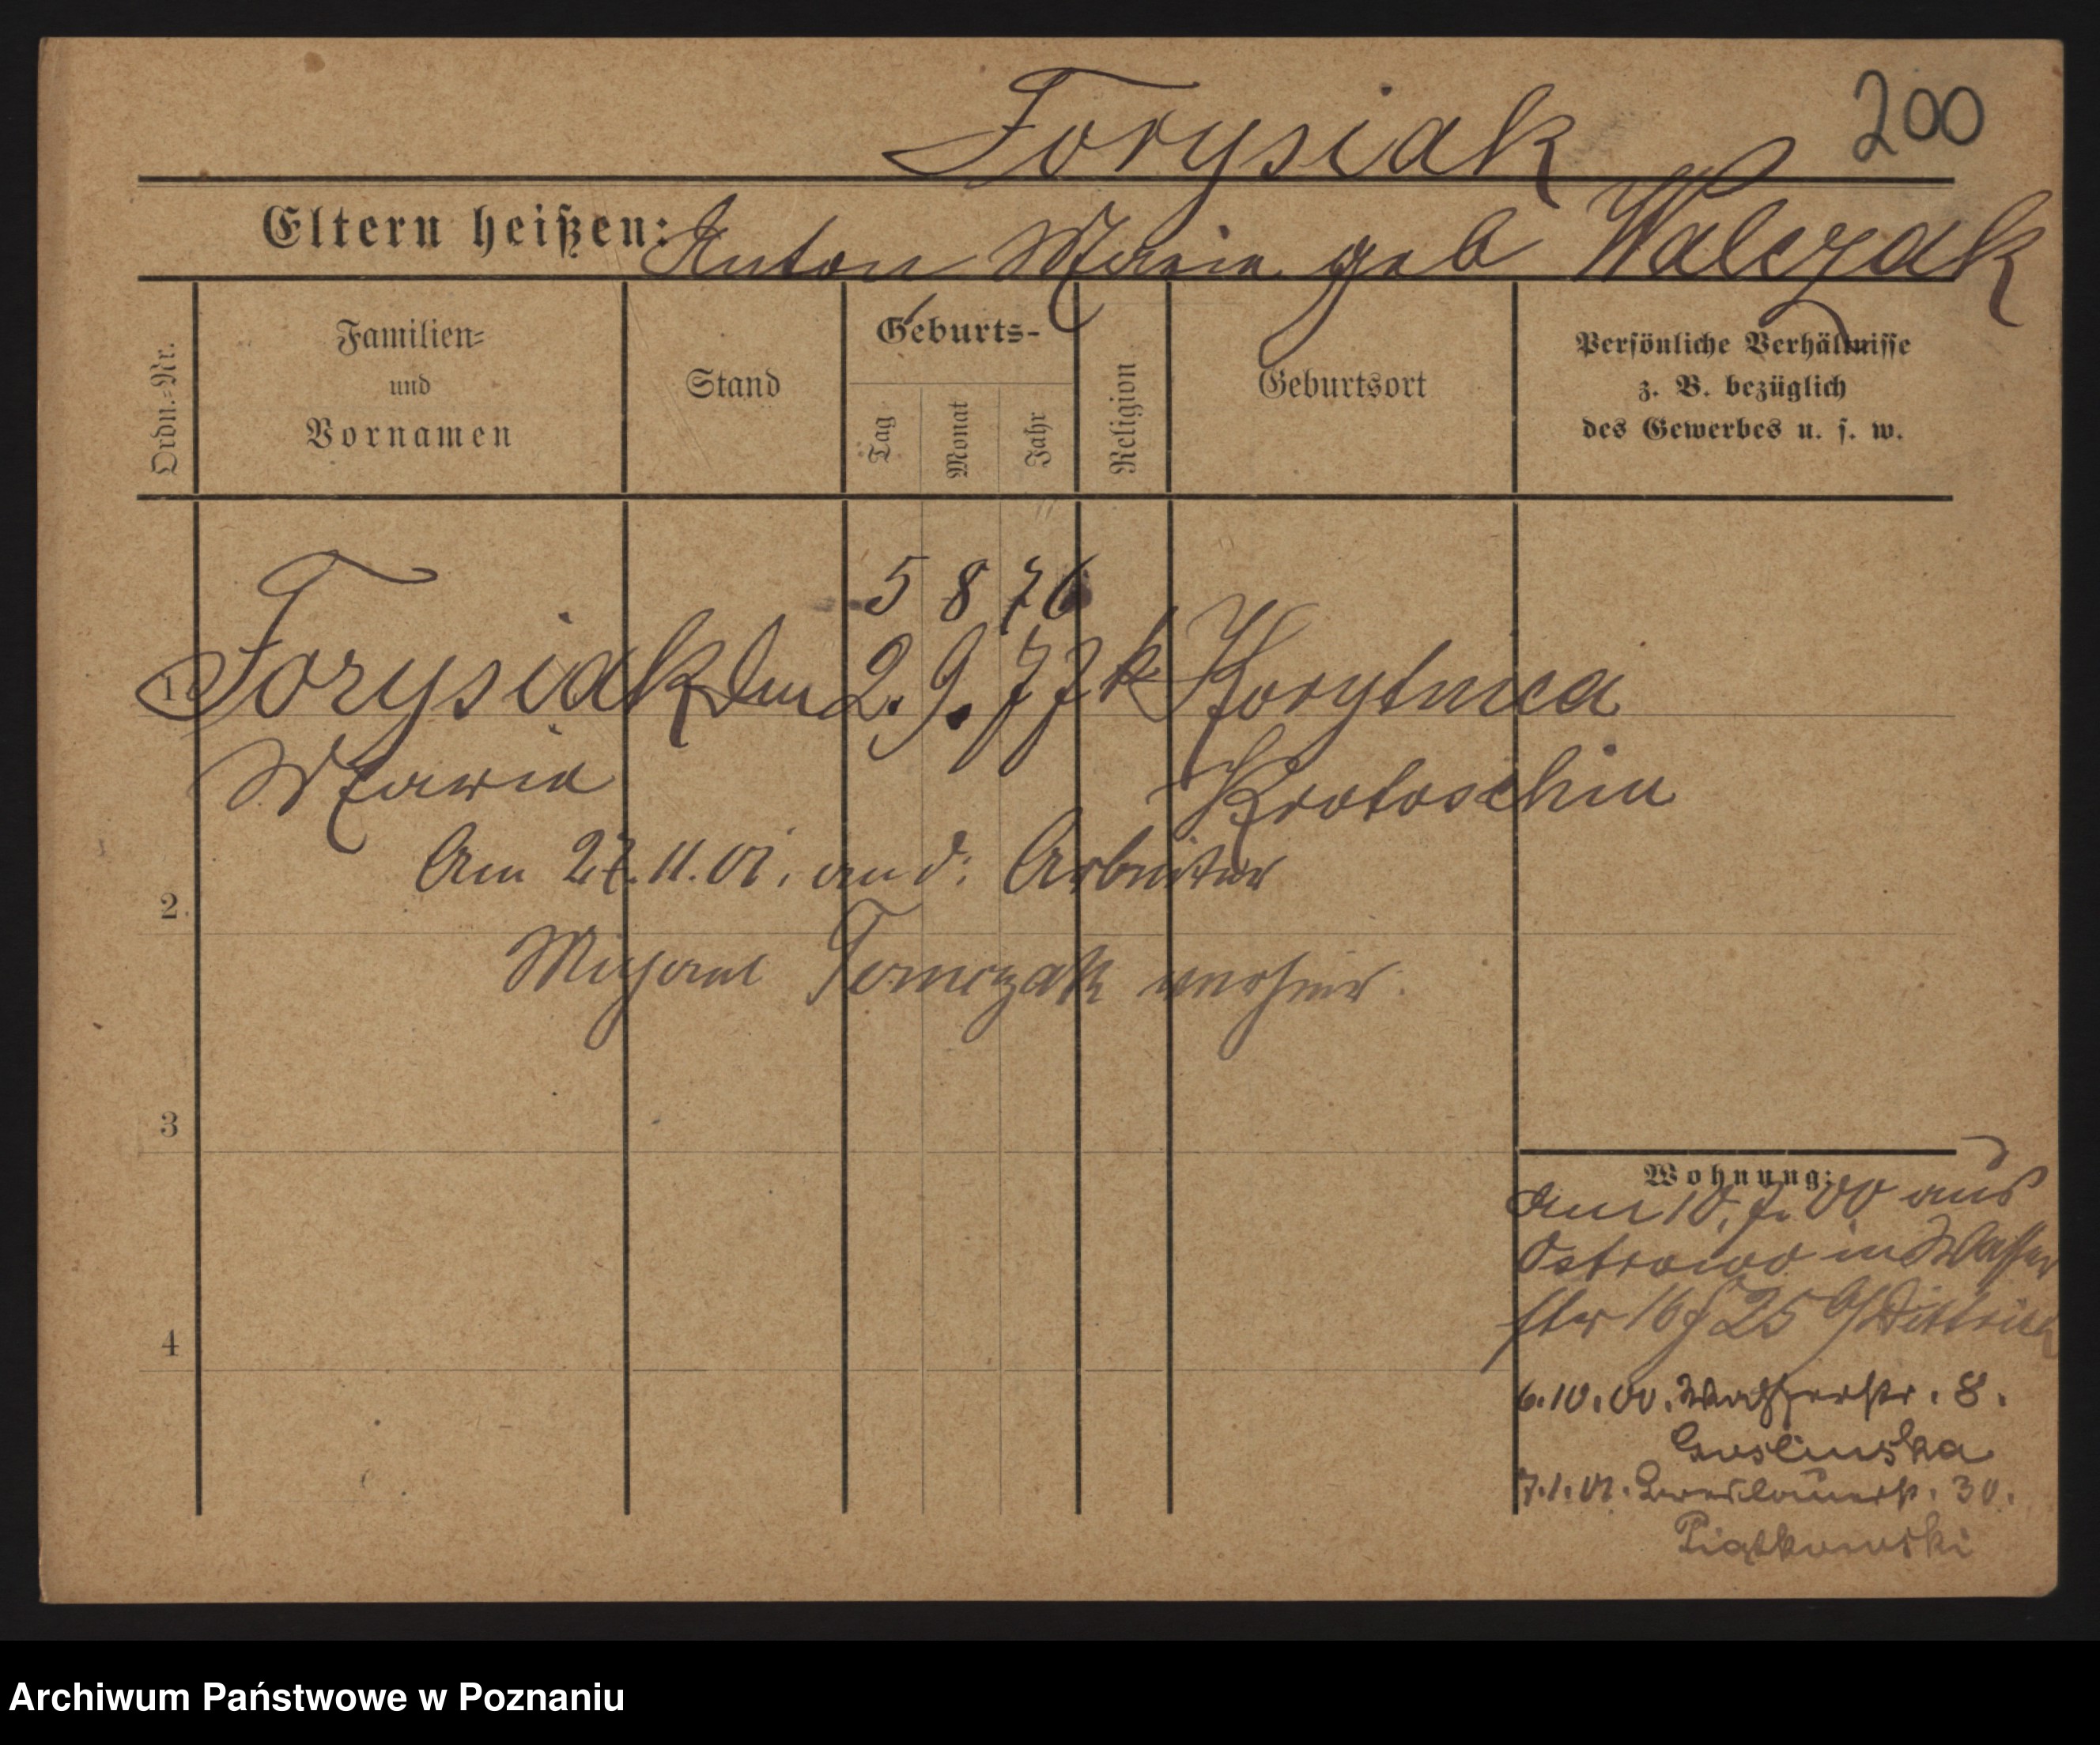 Forysiak
200
Eltern heißen: Anton Marie geb Walczak
Ordn.=Nr.
Familien=
und
Vornamen
Stand
Geburts-
Tag
Monat
Jahr
Religion
Geburtsort
Persönliche Verhältnisse
z. B. bezüglich
des Gewerbes u. s. w.
5 8 76
1 Forysiak 2. 9. 77 k Korytnica
Maria Krotoschin
Am 27.11.01. an d. Arbeiter
2
Michael Tomczak verheir.
3
Wohnung:
Am 10.7.00 aus
Ostrowo in Wasser
str 16 25 Dittrich
4
6.10.00. Wasserstr. 8.
Goslinska
7.1.01. Breslauerstr. 30.
Piątkowski
Archiwum Państwowe w Poznaniu